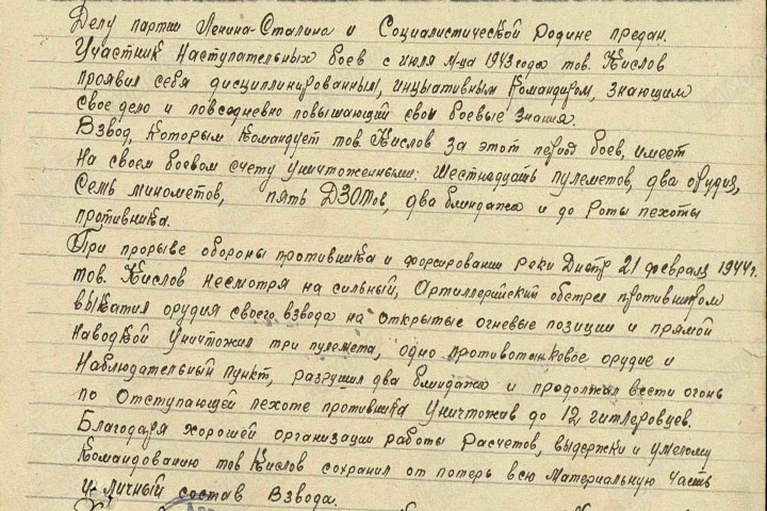 Делу партии Ленина-Сталина и Социалистической Родине предан.
Участник наступательных боев с июля м-ца 1943 года тов. Кислов
проявил себя дисциплинированным, инцыативным командиром, знающим
свое дело и повседневно повышающий свои боевые знания.
Взвод, которым командует тов. Кислов за этот период боев, имеет
на своем боевом счету уничтоженными: шестнадцать пулеметов, два орудия,
семь минометов, пять ДЗОТов, два блиндажа и до роты пехоты
противника.
При прорыве обороны противника и форсировании реки Днепр 21 февраля 1944г.
тов. Кислов несмотря на сильный, Артиллерийский обстрел противником
выкатил орудия своего взвода на открытые огневые позиции и прямой
наводкой уничтожил три пулемета, одно противотанковое орудие и
Наблюдательный пункт, разрушил два блиндажа и продолжал вести огонь
по отступающей пехоте противника уничтожив до 12 гитлеровцев.
Благодаря хорошей организации работы расчетов, выдержки и умелому
командованию тов Кислов сохранил от потерь всю материальную часть
и личный состав взвода.